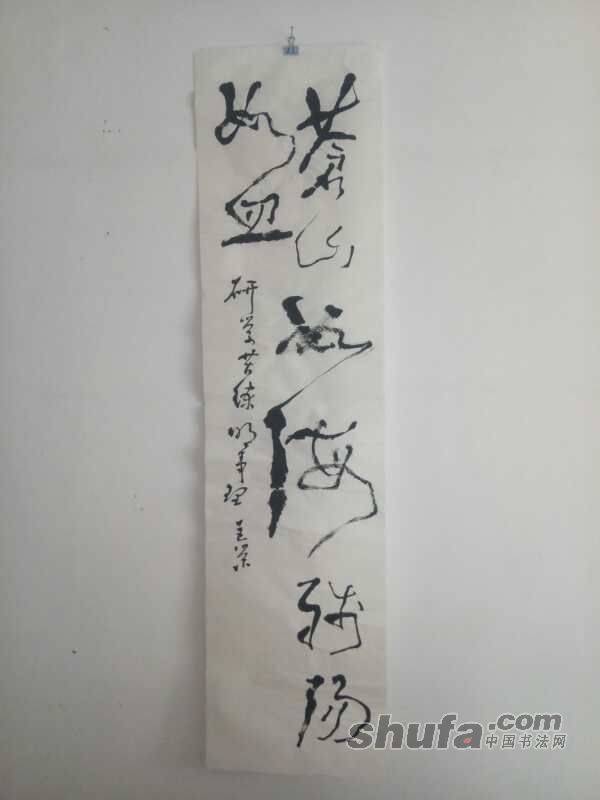 蒼山如海残陽
如血
研学苦练明事理
shufa.com
中国书法网